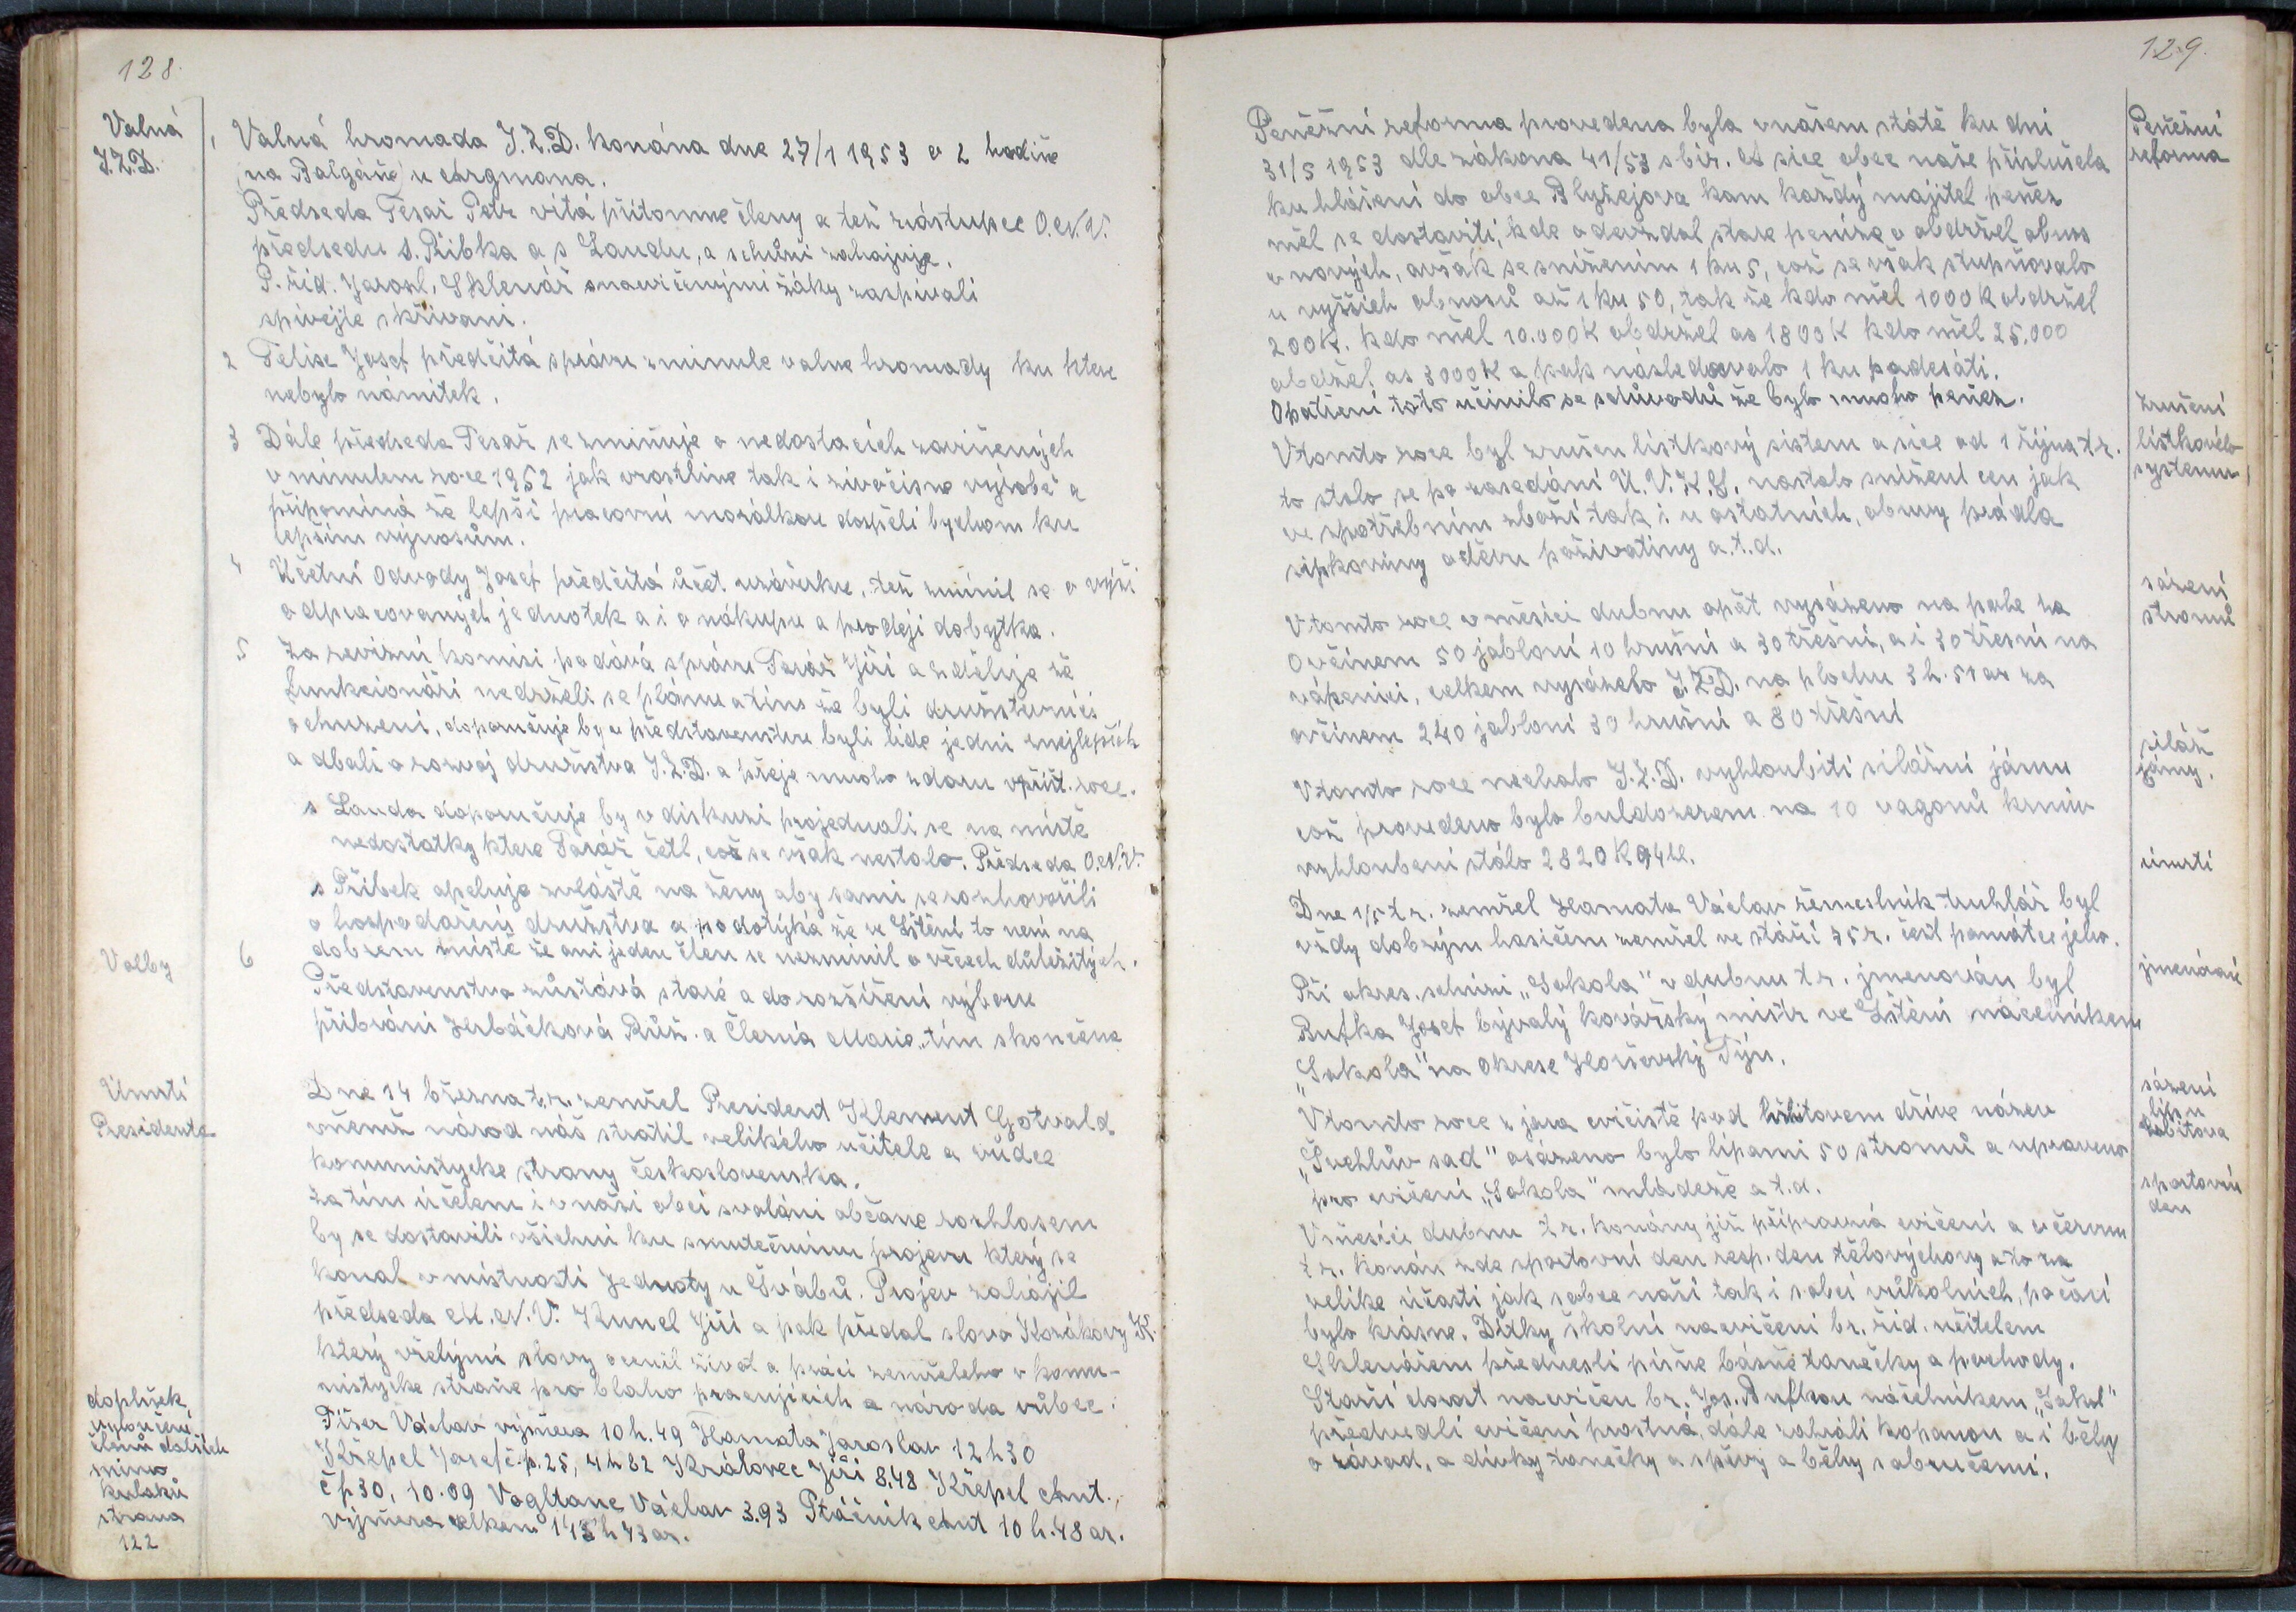 128.
Valná
J.Z.D.
1 Valná hromada J.Z.D. konána dne 27/1 1953 v 2 hodině
na Balgáně u Argmana.
Předseda Tesař Petr vítá přítomne členy a též zástupce O.N.V.
předsedu s. Přibka a s Laudu, a schůzi zahajuje.
P. říd. Jarosl. Sklenář s nacvičenými žáky zazpívali
spívejte skřivani.
2 Pelise Josef předčítá správu z minule valne hromady ku ktere
nebylo námitek.
3 Dále předseda Tesař se zmiňuje o nedostacích zaviněných
v minulem roce 1952 jak v rostline tak i živočisne výrobě a
připomíná že lepší pracovní morálkou dospěli bychom ku
lepším výnosům.
4 Účetní Odvody Josef předčítá účet. uzávěrku, též zmínil se o výši
odpracovaných jednotek a i o nákupu a prodeji dobytka.
5 Za revizní komisi podává správu Taráš Jiří a sděluje že
funkcionáři nedrželi se plánu a tím že byli družstevníci
ochuzeni, doporučuje by v představenstvu byli lide jedni z nejlepších
a dbali o rozvoj družstva J.Z.D. a přeje mnoho zdaru v příšt. roce.
s Lauda doporučuje by v diskuzi projednali se na místě
nedostatky ktere Taráš četl, což se však nestalo. Předseda O.N.V.
s Přibek apeluje zvláště na ženy aby sami se rozhovořili
o hospodaření družstva a podotýká že ve Lštění to není na
dobrem místě že ani jeden člen se nezmínil o věcech důležitých.
Volby
6 Představenstvo zůstává staré a do rozšíření výboru
přibráni Herbáčková Růž. a Černá Marie, tím skončena
Úmrtí
Presidenta
Dne 14 března t.r. zemřel President Klement Gotvald
v němž národ náš stratil velikého učitele a vůdce
kommistycke strany československa.
Za tím účelem i v naši obci svoláni občane rozhlasem
by se dostavili všichni ku smutečnímu projevu který se
konal v místnosti Jednoty u Švábů. Projev zahájil
předseda M.N.V. Kunel Jiří a pak předal slovo Kozákovy K.
který vřelými slovy ocenil život a práci zemřeleho v komu-
nistycke straně pro blaho pracujících a národa vůbec.
doplněk
vyloučení
členů dalších
mimo
kulaků
strana
122
Píšer Václav výměra 10 h. 49 Hamata Jaroslav 12 h 30
Křepel Josef č.p. 25, 4 h 82 Královec Jiří 8.48 Křepel Ant.,
č p 30, 10.09 Vogltanc Václav 3.93 Ptáčník Ant 10 h. 48 ar.
výměra celkem h 43 ar.
129.
Peněžní
reforma
Peněžní reforma provedena byla v našem státě ku dni
31/5 1953 dle zákona 41/53 sbír. a sice obec naše příslušela
ku hlášení do obce Blyžejova kam každý majitel peněz
měl se dostaviti, kde odevzdal stare peníze a obdržel obnos
v nových, avšak se snížením 1 ku 5, což se však stupňovalo
u vyšších obnosů až 1 ku 50, tak že kdo měl 1000 K obdržel
200 K. kdo měl 10.000 K obdržel as 1800 K kdo měl 25.000
obdržel as 3000 K a pak následovalo 1 ku padesáti.
Opatření toto učinilo se z důvodů že bylo mnoho peněz.
zrušení
lístkovéh
systemu
V tomto roce byl zrušen lístkový sistem a sice od 1 října t r.
to stalo se po zasedání Ú.V.K.S. nastalo snížení cen jak
ve spotřebním zboží tak i u ostatních, obuvy prádla
sipkoviny oděvu poživatiny a.t.d.
sázení
stromů
V tomto roce v měsíci dubnu opět vysázeno na pole za
Ovčínem 50 jabloní 10 hrušní a 30 třešní, a i 30 třešní na
vápenici, celkem vysázelo J.Z.D. na plochu 3 h. 51 ar za
ovčínem 240 jabloní 30 hrušní a 80 třešní
siláž
jámy.
V tomto roce nechalo J.Z.D. vyhloubiti silážní jámu
což provedeno bylo buldozerem na 10 vagonů krmiv
vyhloubení stálo 2820 K 94 h.
úmrtí
Dne 1/5 t r. zemřel Hamata Václav řemeslník truhlář byl
vždy dobrým hasičem zemřel ve stáří 75 r. čest památce jeho.
jmenování
Při okres. schůzi „Sokola" v dubnu t r. jmenován byl
Bufka Josef bývalý kovářský mistr ve Lštění náčelníkem
„Sokola" na Okrese Horšovský Týn.
sázení
lip u
hřbitova
V tomto roce z jara cvičiště pod hřbitovem dříve název
„Švehlův sad" osázeno bylo lípami 50 stromů a upraveno
pro cvičení „Sokola" mládeže a t.d.
sportovní
den
V měsíci dubnu t r. konány již přípravná cvičení a v červnu
t r. konán zde sportovní den resp. den tělovýchovy a to za
velike účasti jak z obce naší tak i z obcí vůkolních, počasí
bylo krásne. Dítky školní nacvičeni br. říd. učitelem
Sklenářem přednesli písně básně tanečky a pochody.
Starší dorost nacvičen br. Jos. Bufkou náčelníkem „Sokol"
předvedli cvičení prostná, dále zahráli kopanou a i běhy
o závod, a dívky tanečky a spěvy a běhy s obručemi.